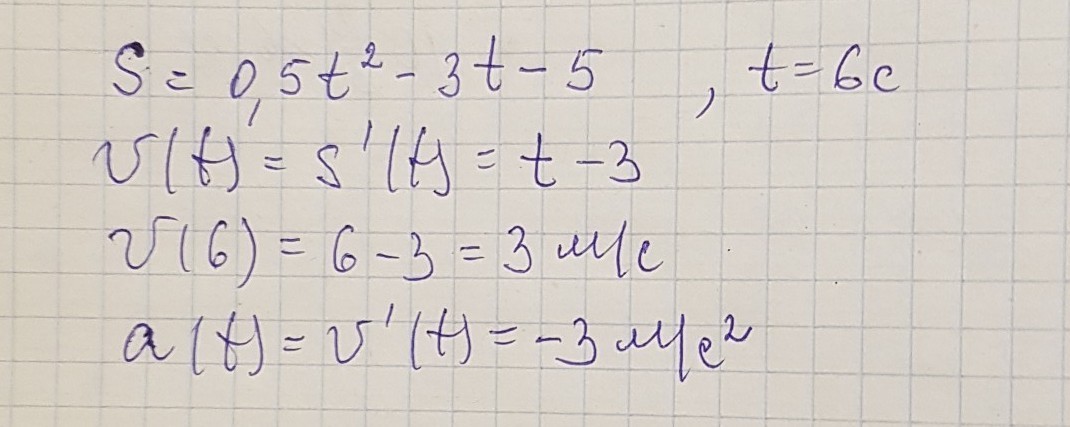 S = 0,5t² - 3t - 5 , t = 6с
v(t) = s'(t) = t - 3
v(6) = 6 - 3 = 3 м/с
a(t) = v'(t) = -3 м/с²